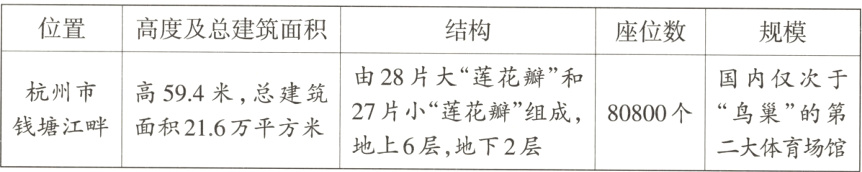 位置 高度及总建筑面积 结构 座位数 规模
杭州市钱塘江畔 高59.4米,总建筑面积21.6万平方米 由28片大“莲花瓣”和27片小“莲花瓣”组成,地上6层,地下2层 80800个 国内仅次于“鸟巢”的第二大体育场馆